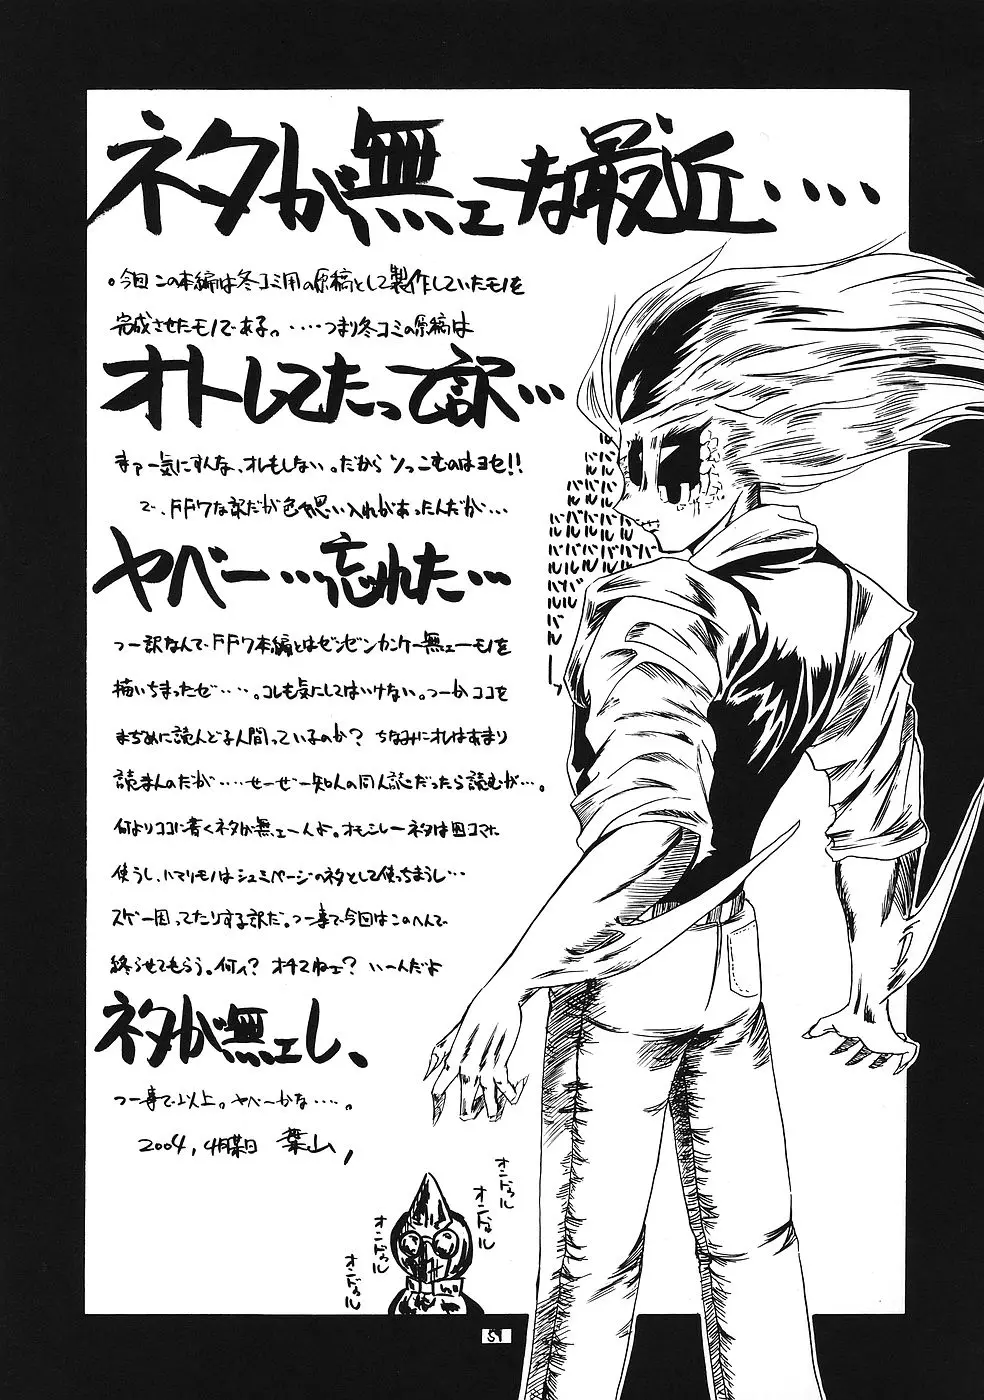 ネタが無ェーな最近・・・・
。今回この本編は冬コミ用の原稿として製作していたモノを
完成させたモノである。・・・・つまり冬コミの原稿は
オトしてたって訳・・・
まァ一気にすんな、オレもしない。だからツっこむのはヨセ!!
で、FF7な訳だが色々思い入れがあったんだが・・・
ヤベー・・・忘れた・・・
つー訳なんで、FF7本編とはゼンゼンカンケー無ェーモノを
描いちまったゼ・・・・。コレも気にしてはいけない。つーかココを
まぢめに読んどる人間っているのか? ちなみにオレはあまり
読まんのだが・・・・せーぜー知人の同人誌だったら読むが・・・。
何よりココに書くネタが無ェーんよ。オモシレーネタは四コマに
使うし、ハマリモノはシュミページのネタとして使っちまうし・・・
スゲー困ってたりする訳だ。つー事で今回はこのへんで
終らせてもらう。何ィ? オチてねェ? いーんだよ
ネタが無ェし、
つー事で以上。ヤベーかな・・・・。
2004,4月某日 葉山,
バルバルバルバルバルバルバルバルバルバルバルバルバルバルバルバルッ
オンドゥル
オンドゥル
オンドゥル
オンドゥル
51